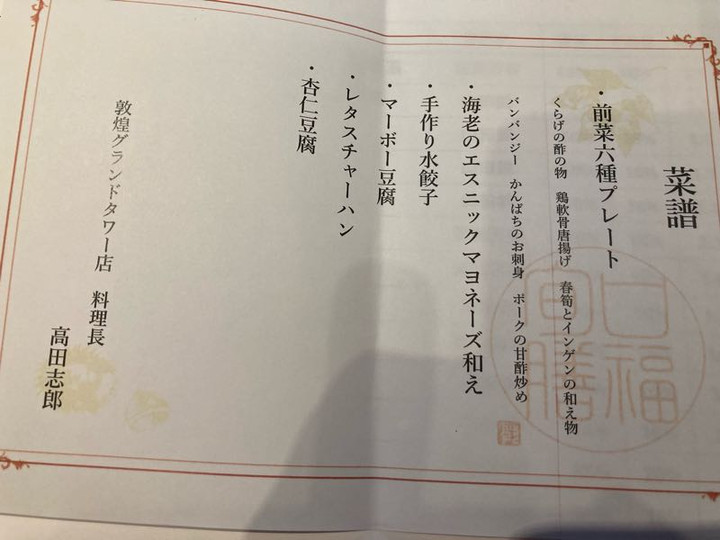 菜譜
・前菜六種プレート
くらげの酢の物　鶏軟骨唐揚げ　春筍とインゲンの和え物
バンバンジー　かんぱちのお刺身　ポークの甘酢炒め
・海老のエスニックマヨネーズ和え
・手作り水餃子
・マーボー豆腐
・レタスチャーハン
・杏仁豆腐
敦煌グランドタワー店　料理長
高田志郎
口福